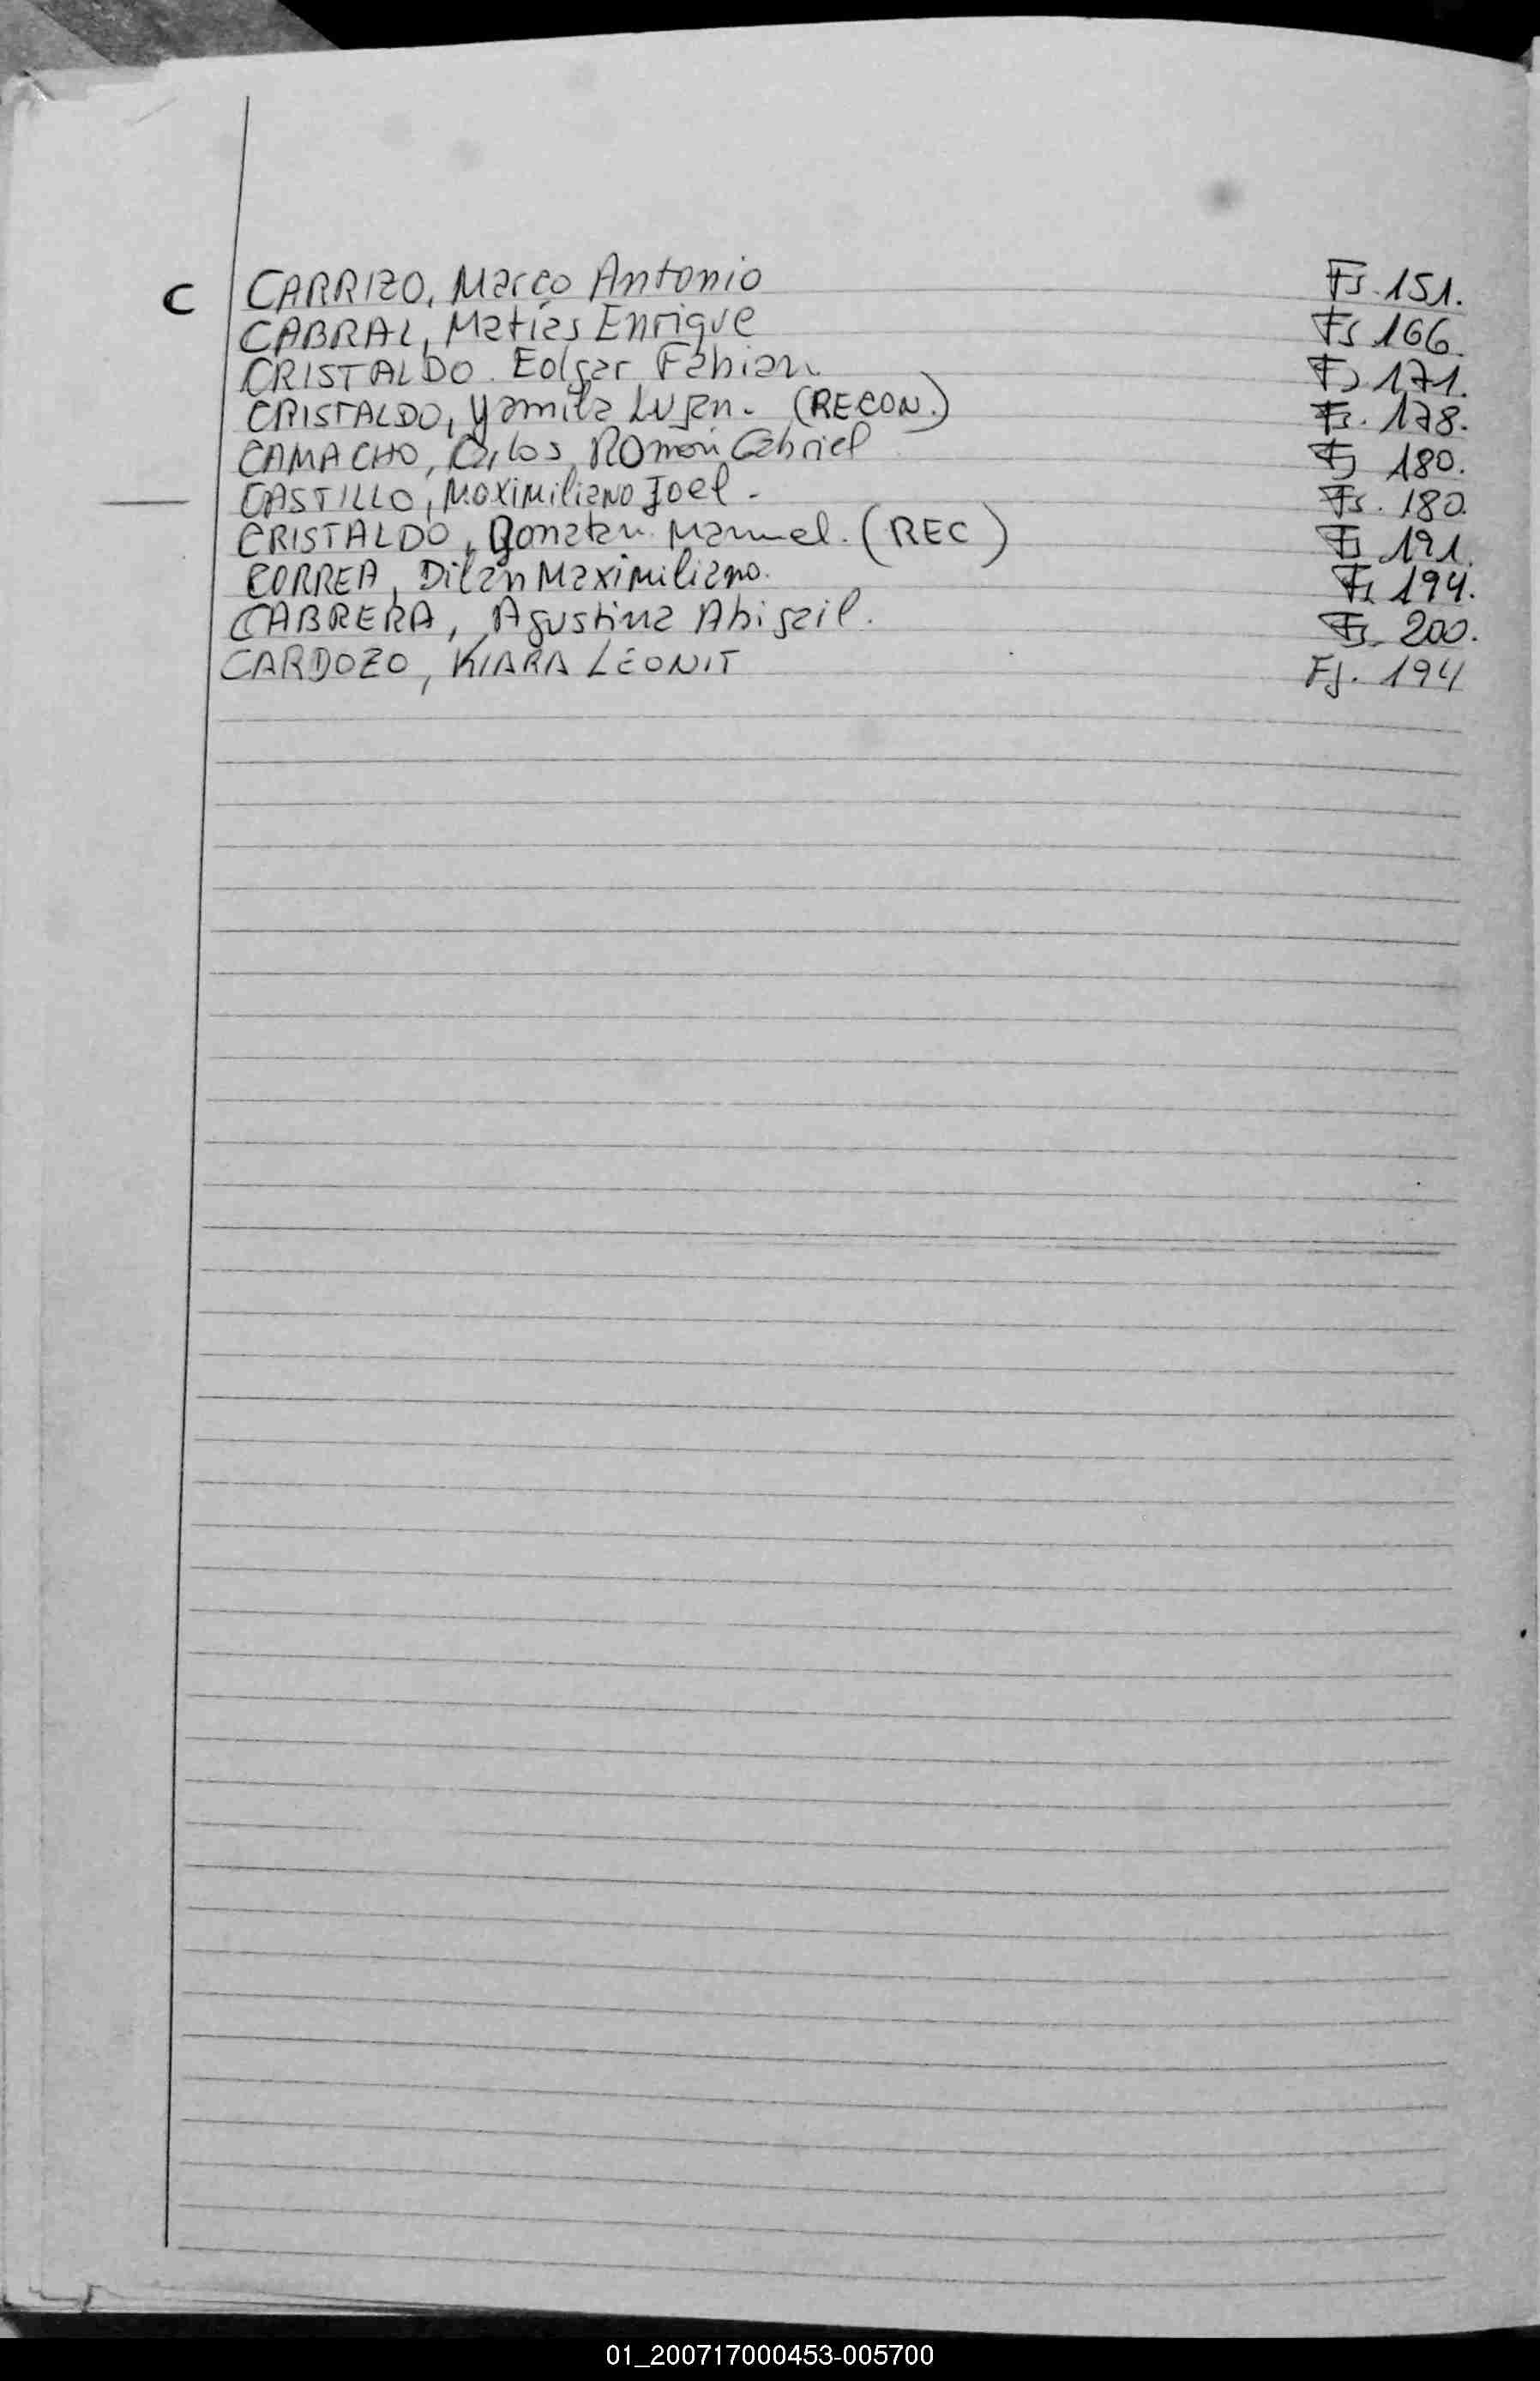 C CARRIZO, Marco Antonio Fs. 151.
CABRAL, Matías Enrique Fs 166.
CRISTALDO. Edgar Fabian. Fs 171.
CRISTALDO, Yamila Luján. (RECON.) Fs. 178.
CAMACHO, Carlos Román Gabriel Fs 180.
CASTILLO, Maximiliano Joel. Fs. 180.
CRISTALDO, Jonatan Manuel. (REC) Fs 191.
CORREA, Dilan Maximiliano. Fs 194.
CABRERA, Agustina Abigail. Fs. 200.
CARDOZO, KIARA LEONIT FJ. 194
01_200717000453-005700